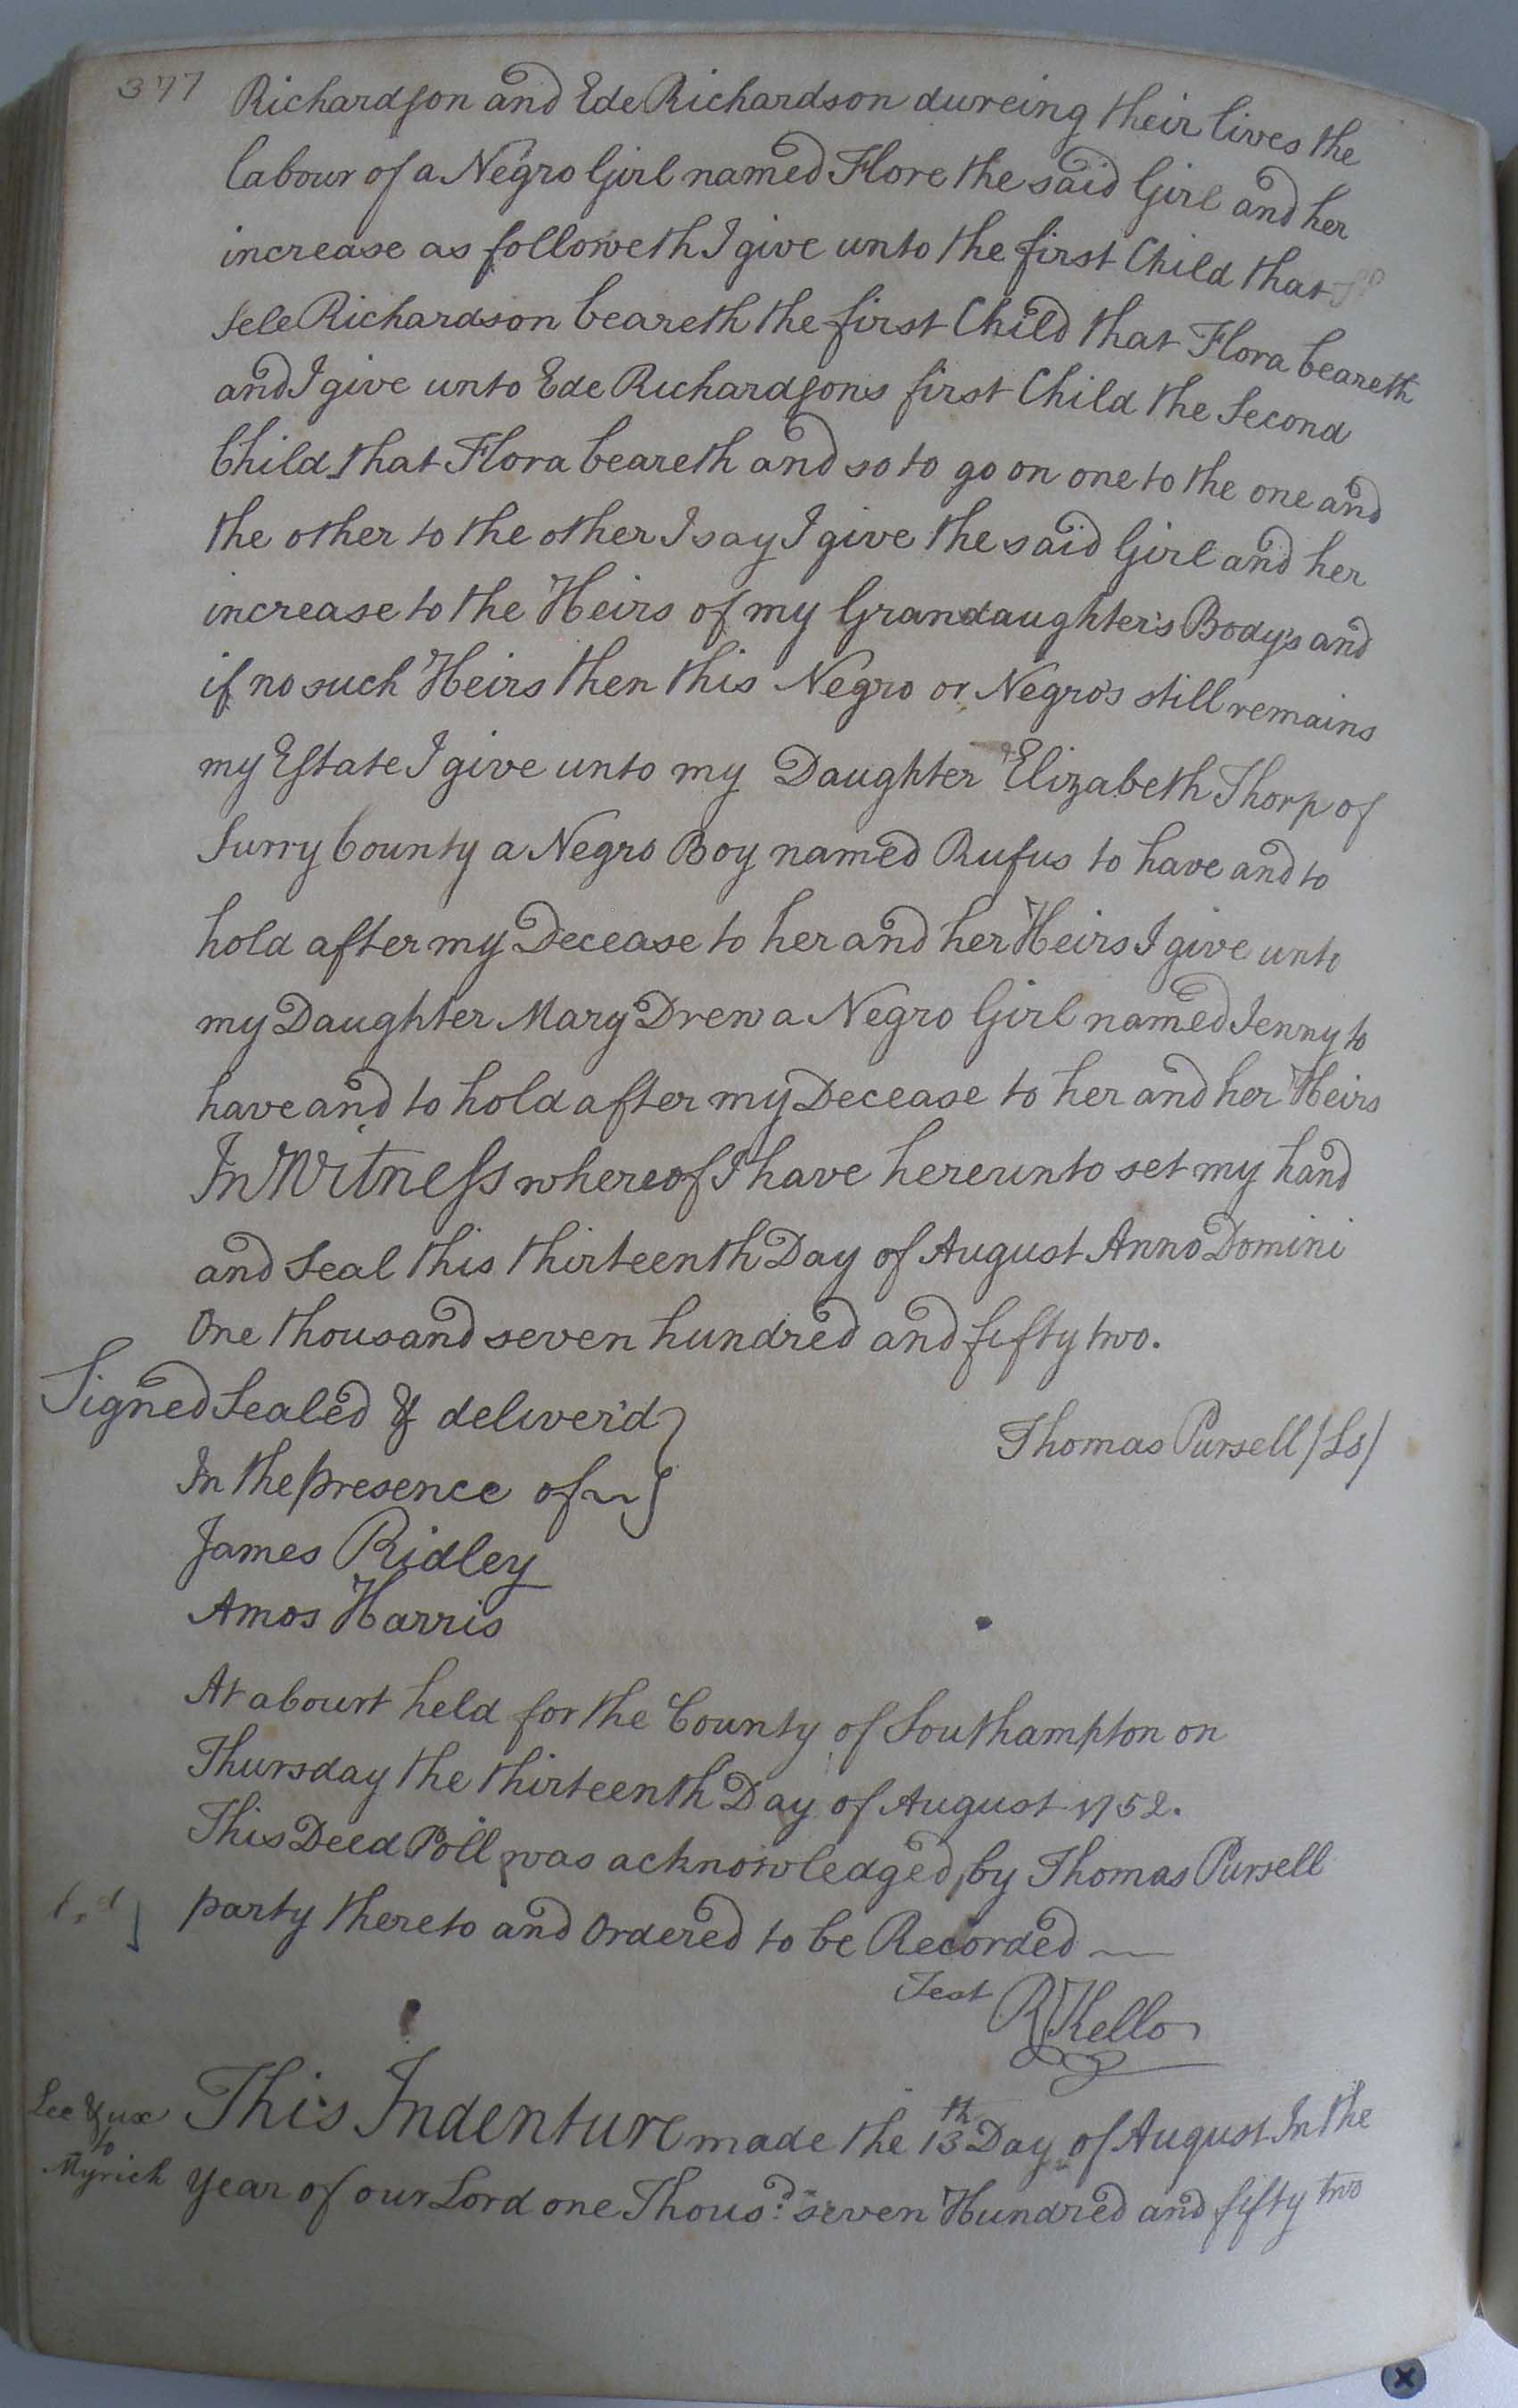 377
Richardson and Ede Richardson dureing their lives the
labour of a Negro Girl named Flore the said Girl and her
increase as followeth I give unto the first Child that
Sele Richardson beareth the first Child that Flora beareth
and I give unto Ede Richardsons first Child the Second
Child that Flora beareth and so to go on one to the one and
the other to the other I say I give the said Girl and her
increase to the Heirs of my Grandaughter's Body's and
if no such Heirs then this Negro or Negro's still remains
my Estate I give unto my Daughter Elizabeth Thorp of
Surry County a Negro Boy named Rufus to have and to
hold after my Decease to her and her Heirs I give unto
my Daughter Mary Drew a Negro Girl named Jenny to
have and to hold after my Decease to her and her Heirs
In Witness whereof I have hereunto set my hand
and Seal this thirteenth Day of August Anno Domini
One thousand seven hundred and fifty two.
Signed Sealed & deliver'd
Thomas Pursell /Ls/
In the presence of
James Ridley
Amos Harris
At a Court held for the County of Southampton on
Thursday the thirteenth Day of August 1752.
This Deed Poll was acknowledged by Thomas Pursell
party thereto and Ordered to be Recorded
Test R Kello
Lee & ux
to
Myrick
This Indenture made the 13th Day of August In the
year of our Lord one Thousd. seven Hundred and fifty two